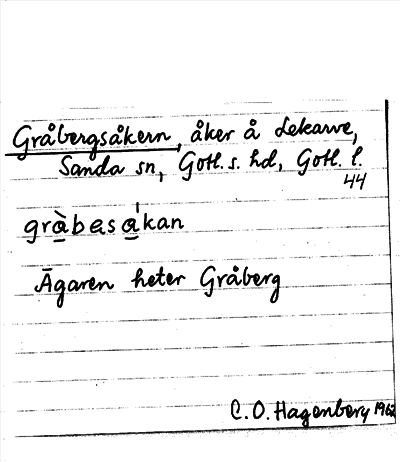 Gråbergsåkern, åker å Lekarve,
Sanda sn, Gotl. s. hd, Gotl. l.
44
gràbasakan
Ägaren heter Gråberg
C. O. Hagenberg 1962